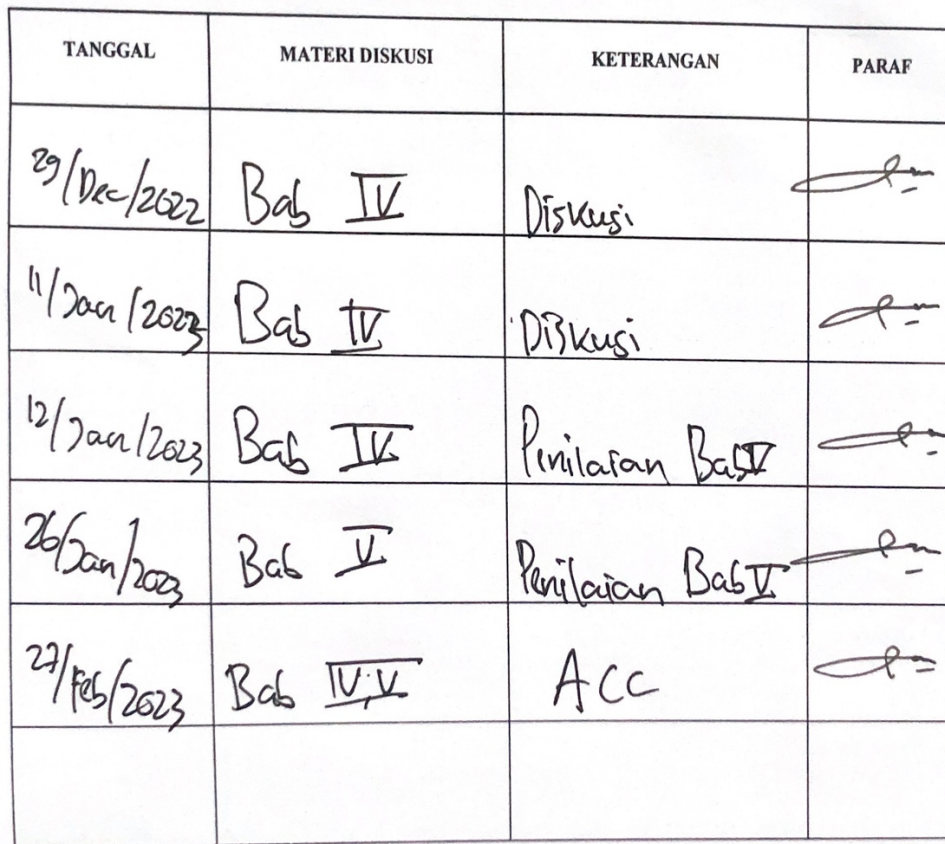 TANGGAL MATERI DISKUSI KETERANGAN PARAF
29/Dec/2022 Bab IV Diskusi
11/Jan/2023 Bab IV Diskusi
12/Jan/2023 Bab IV Penilaian Bab V
26/Jan/2023 Bab V Penilaian Bab V
27/Feb/2023 Bab IV, V ACC